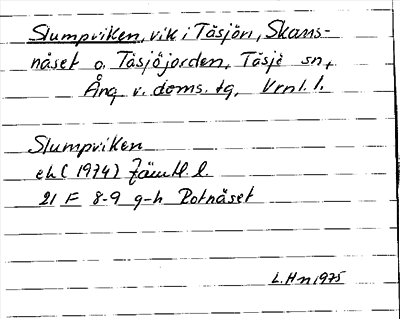 Slumpviken, vik i Tåsjön, Skans-
näset o. Tåsjöjorden, Tåsjö sn,
Ång v. doms. tg, Vrnl. l.
Slumpviken
ek (1974) Jämtl. l.
21 F 8-9 g-h Rotnäset
L. Hn 1975